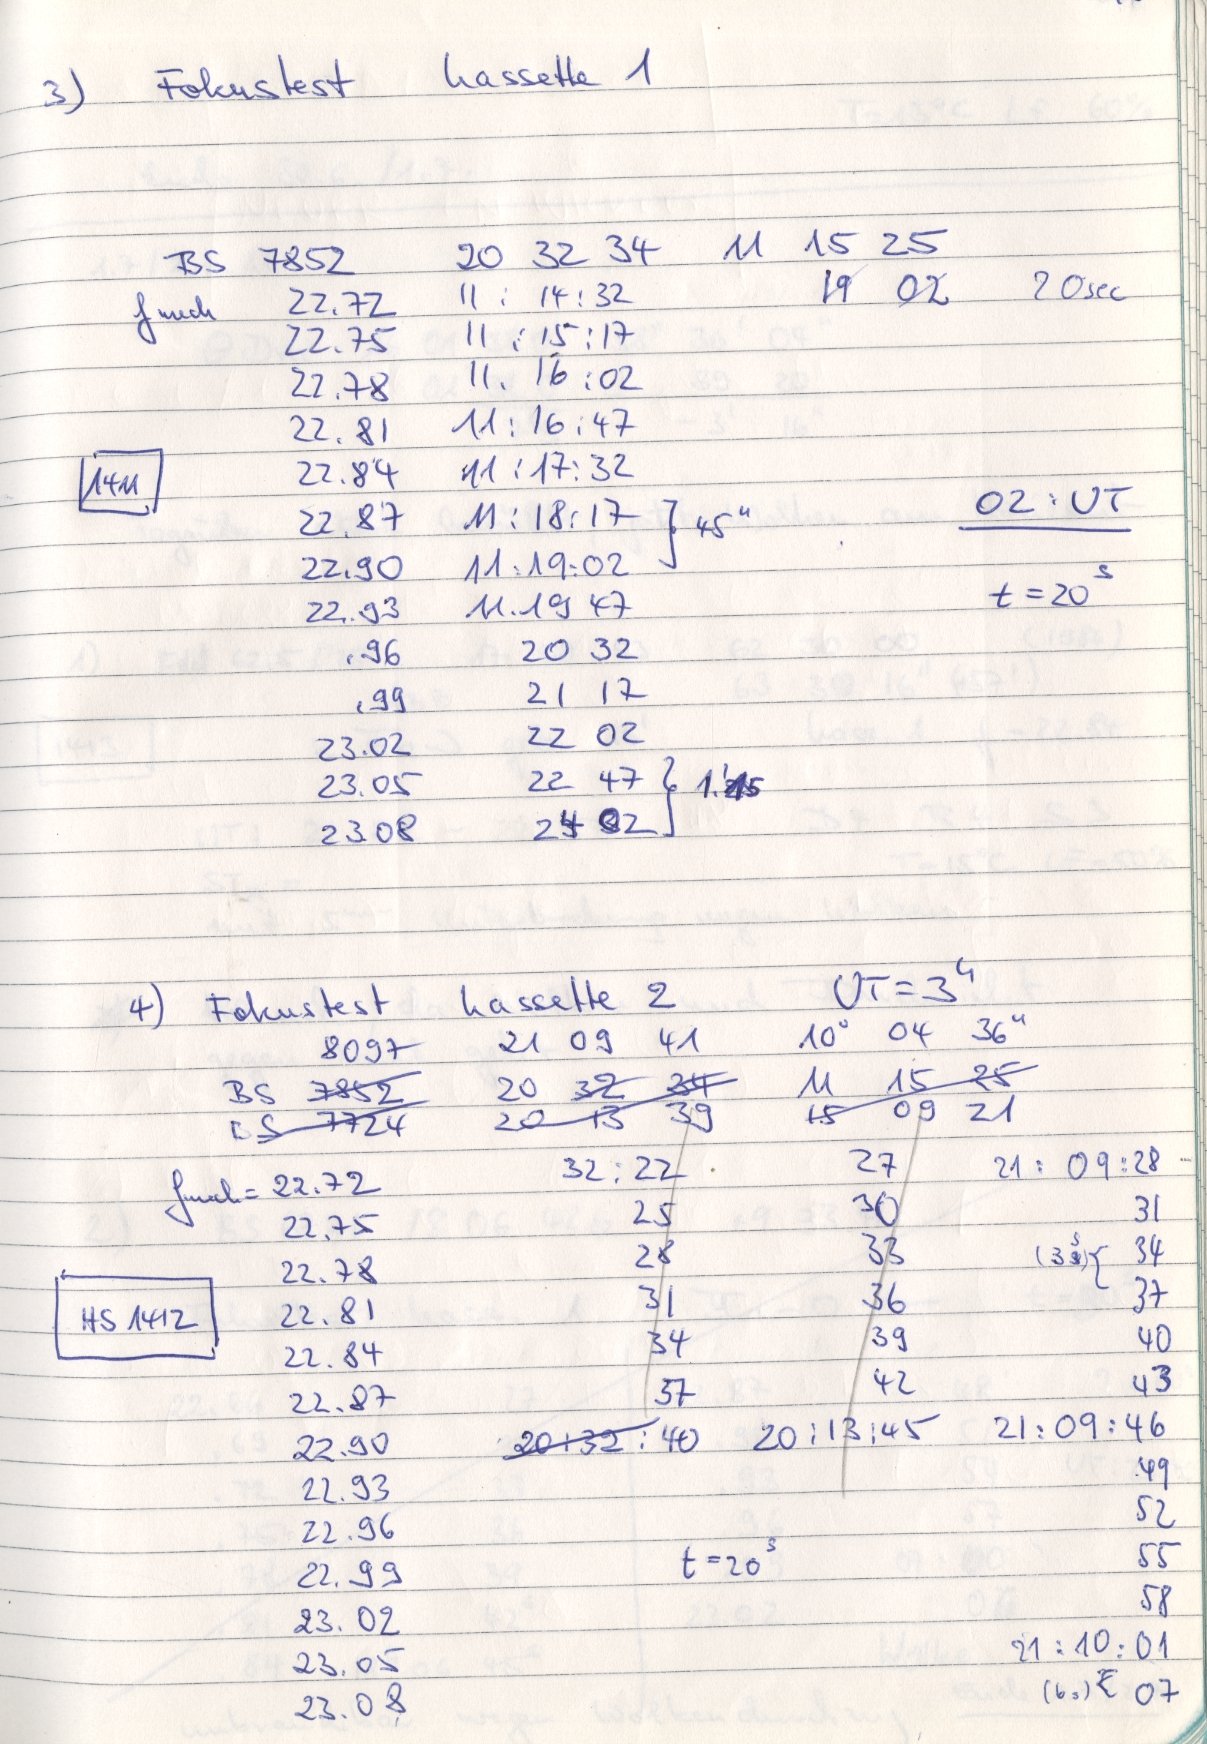 3) Fokustest Kassette 1
BS 7852 20 32 34 11 15 25
19 02 20sec
fmech 22.72 11 : 14:32
22.75 11 : 15:17
22.78 11. 16:02
22.81 11:16:47
1411 22.84 11:17:32
22.87 11:18:17 ] 45" 02:UT
22.90 11:19:02
22.93 11.19 47 t=20s
.96 20 32
.99 21 17
23.02 22 02
23.05 22 47 } 1.'15
23.08 24 02
4) Fokustest Kassette 2 UT=3h
8097 21 09 41 10° 04 36"
BS 7852 20 32 34 11 15 25
BS 7724 20 13 39 15 09 21
fmech= 22.72 32:22 27 21: 09:28
22.75 25 30 31
22.78 28 33 (3s){ 34
HS 1412 22.81 31 36 37
22.84 34 39 40
22.87 37 42 43
22.90 20:32:40 20:13:45 21:09:46
22.93 49
22.96 52
22.99 t=20s 55
23.02 58
23.05 21:10:01
23.08 (6s){ 07